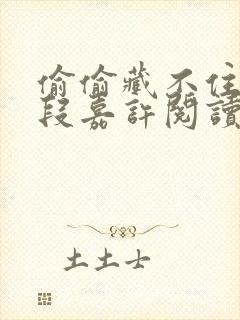 偷偷藏不住
段嘉許閱讀
土土士